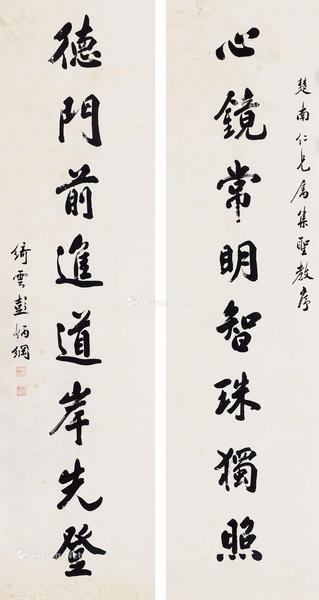 楚南仁兄属集聖教序
心鏡常明智珠獨照
德門前進道岸先登
綺雲彭炳綱